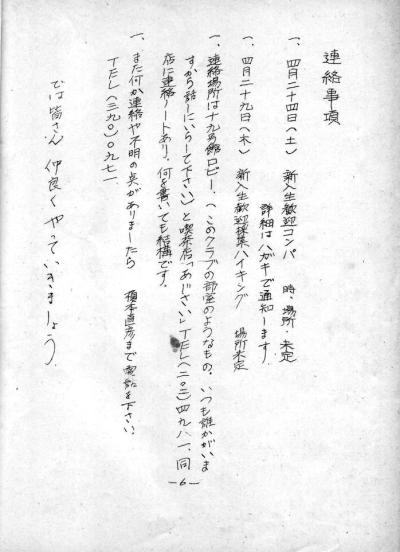 連絡事項
一、四月二十四日（土）　新入生歓迎コンパ　時、場所・未定
詳細はハガキで通知します。
一、四月二十九日（木）　新入生歓迎採集ハイキング　場所未定
一、連絡場所は十九号館ロビー。（このクラブの部室のようなもの。いつも誰かがいま
すから話しにいらして下さい）と喫茶店「あじさい」TEL（二〇三）四九八一、同
店に連絡ノートあり、何を書いても結構です。
一、また何か連絡や不明の点がありましたら　榎本直彦まで電話を下さい。
TEL（三九〇）〇九七一
では皆さん 仲良くやっていきましょう。
—6—